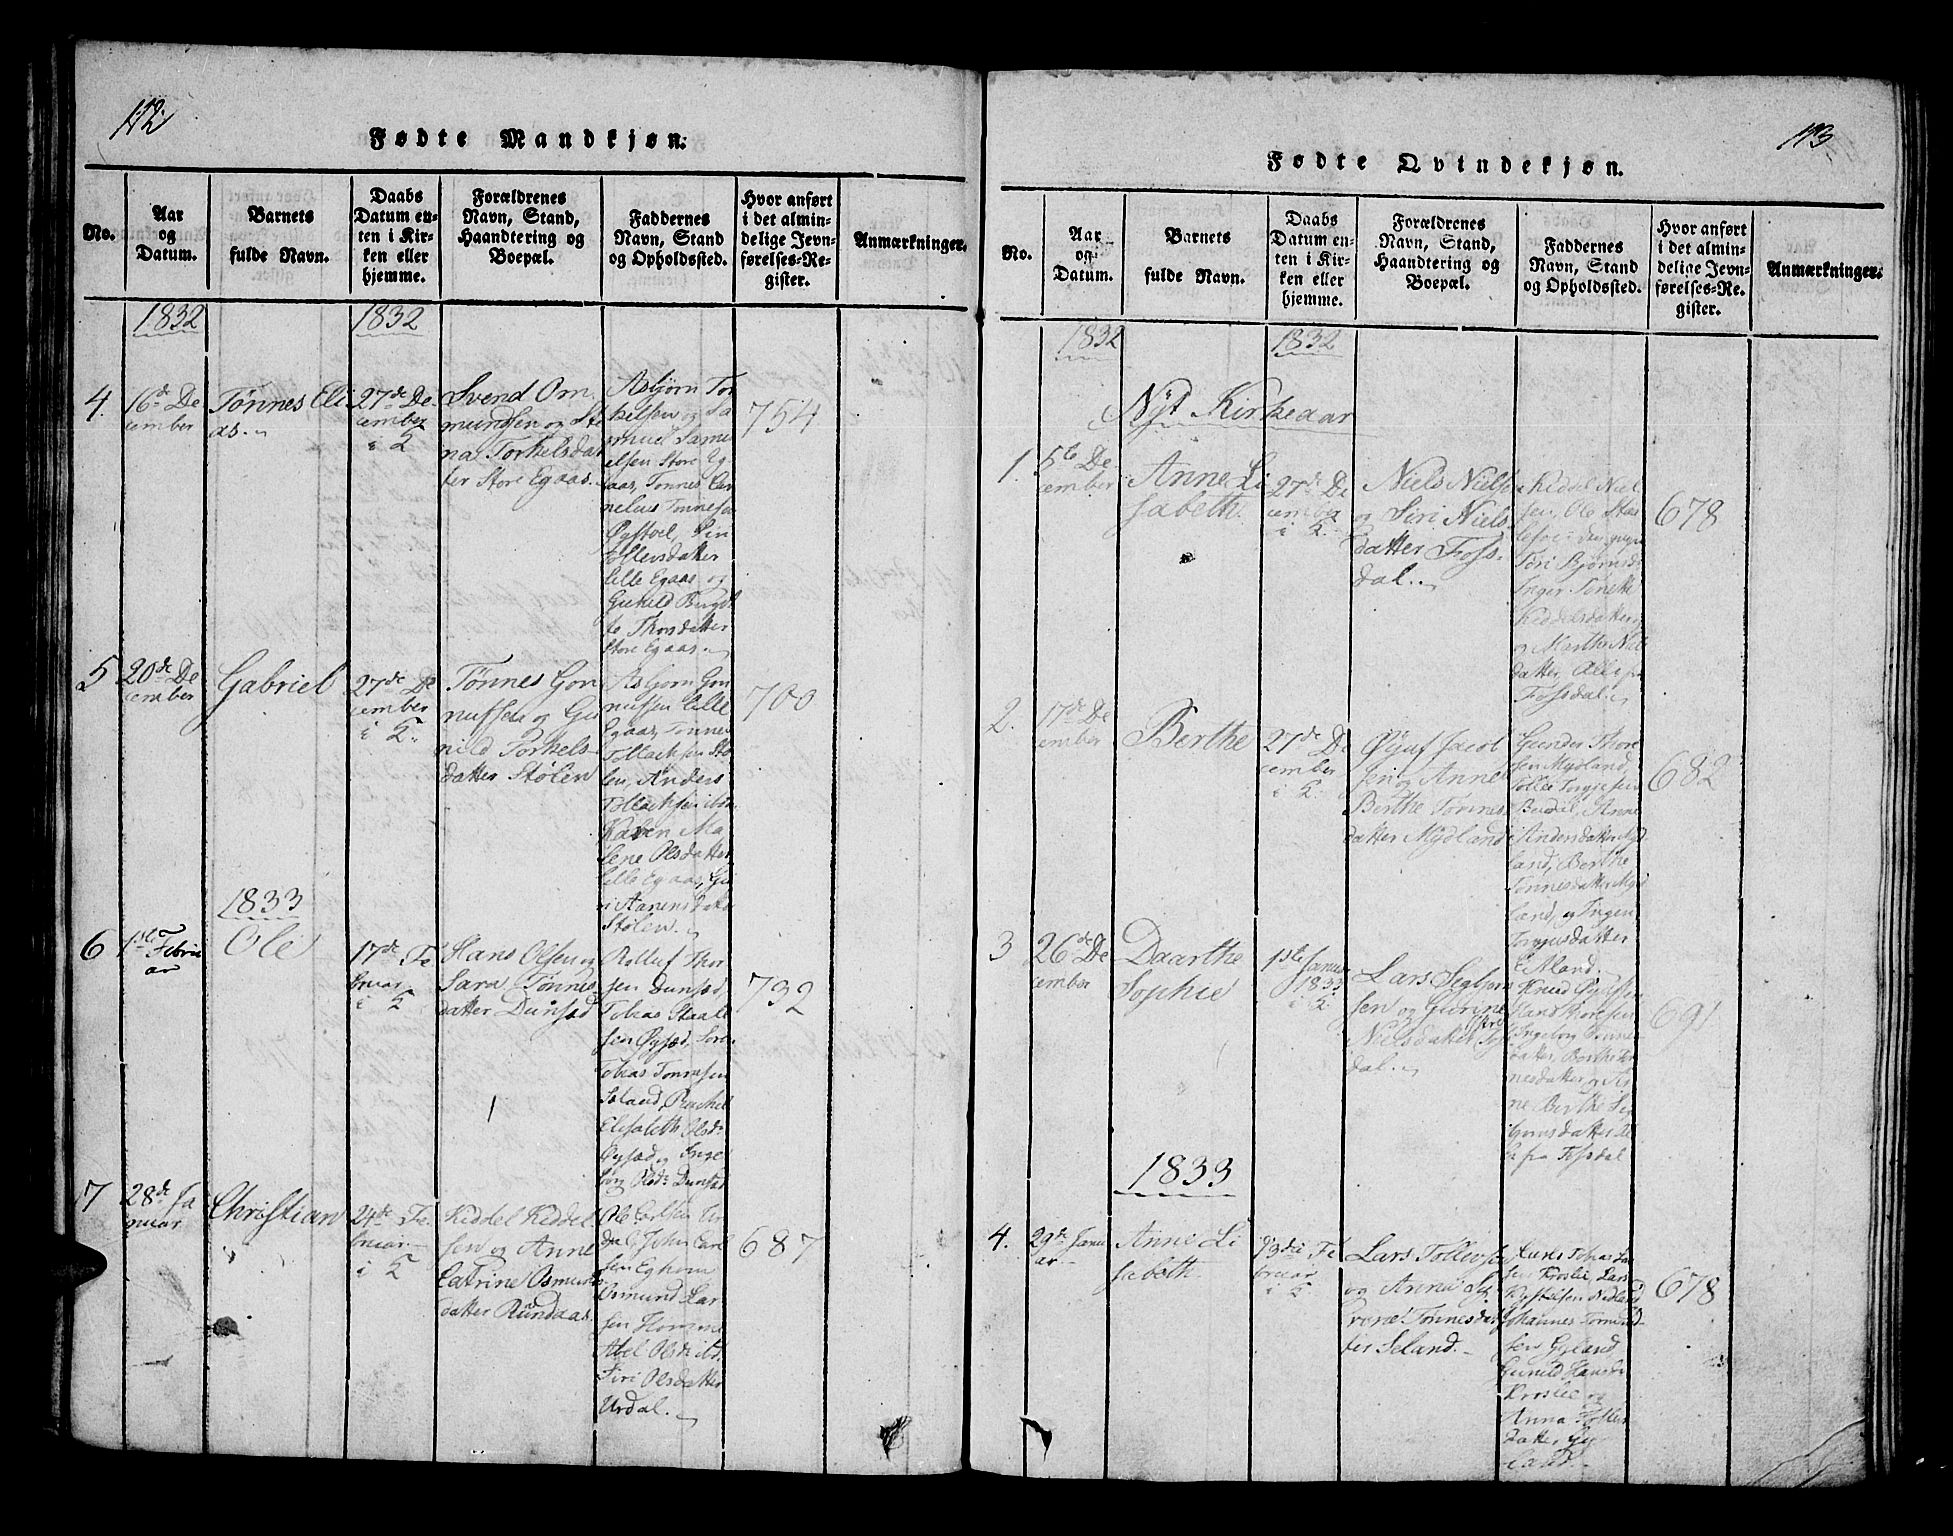 112
Fødte Mandkjøn.
No.
Aar
og
Datum.
Barnets
fulde Navn.
Daabs
Datum en-
ten i Kir-
ken eller
hjemme.
Forældrenes
Navn, Stand,
Haandtering og
Boepæl.
Faddernes
Navn, Stand
og Opholdssted.
Hvor anført
i det almin-
delige Jevn-
førelses-Re-
gister.
Anmærkninger.
1832
1832
4.
16de De
cember
Tønnes Eli
as.
27de De
cember
i K
Svend Om
mundsen og Ste
na Torkelsdat
ter Store Egaas.
Asbjørn Tor
kelsen og Sa
muel Samu
elsen Store Eg
aas, Tønnes Cor
nelius Tønnesen
Øystøel,
Tollevsdatter
Lille Egaas og
Thorsdatter
Store Egaas.
754
5
20de De
cember
Gabriel
27de De
cember
i K.
Tønnes Gon
nufsen og Gu
nild Torkels-
datter Stølen
Asbjørn Gon
nufsen Lille
Egaas, Tønnes
Tollachsen Stø
len, Anders
Tollachsen ibd.
Karen Ma
lene Olsdatter
Lille Egaas, Gu
ri Aanensdatt
Stølen.
700
1833
6
1ste Febru
ar
Ole
17de Fe
bruar
i K
Hans Olsen og
Sara Tønnes
datter Dunsæd
Rolluf Thor
sen Dunsæd,
Tobias Staale
sen Øysæd, Søren
Tobias Tønnesen
Søland, Rachel
Elisabeth Olsdr
Øysæd og Inge
borg Olsdr Dunsæd
732
7
28de Ja
nuar
Christian
24de Fe
bruar
i K
Kiddel Kiddel
sen og Anne
Catrine Osmunds
datter Rundaas.
Ole Carlsen Ur
dal, John Carl
sen Eghom
Osmund Lar
sen Homme
Abel Olsdr ibd.
Siri Olsdatter
Urdal.
687
113
Fødte Qvindekjøn.
No.
Aar
og
Datum.
Barnets
fulde Navn.
Daabs
Datum en-
ten i Kir-
ken eller
hjemme.
Forældrenes
Navn, Stand,
Haandtering og
Boepæl.
Faddernes
Navn, Stand
og Opholdssted.
Hvor anført
i det almin-
delige Jevn-
førelses-Re-
gister.
Anmærkninger.
1832
1832
Nyt Kirkeaar
1.
5te De
cember
Anne Li
sabeth.
27de De
cember
i K.
Niels Nielsen
og Siri Niels-
datter Foss-
dal.
Kiddel Niel
sen, Ole
Siri Bjørnsdr
Inger Tønette
Kiddelsdatter
og Marthe Niels
datter, Alle fra
Fossdal.
678
2.
17de De
cember
Berthe
27de De
cember
i K.
Øjuf Jacob
sen og Anne
Berthe Tønnes
datter Mydland
Gunder Thore
sen Mydland
Tollef Torgiersen
Anne
Andersdatter Myd
land, Berthe
Tønnesdatter Myd
land, og Inger
datter
Aland.
682
3
26de De
cember
Daarthe
Sophie
1ste Januar
1833
i K
Lars Segbjørn
sen og Gurine
Nielsdatter Foss
dal.
Knud
Hans Thoresen
Ingeborg Tønnes
datter, Berthe Tøn
nesdatter og
ne Berthe Se
bjørnsdatter al
le fra Fossdal
691
1833
4.
29de Janu
ar
Anne Li
sabeth
3die Fe
bruar
i K
Lars Tollevsen
og Anna Se
rene Tønnesdat
ter Seland.
Lars Tobias La
sen Kroslie, Lars
Kystelsen Nedland
Johannes Tormund
sen Gyland
Gunild Hansdr
Kroslie og
Anna Tollevs
datter, Gy
land.
678